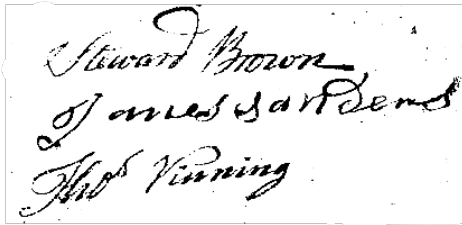 Steward Brown
James Sanders
Thos Vinning